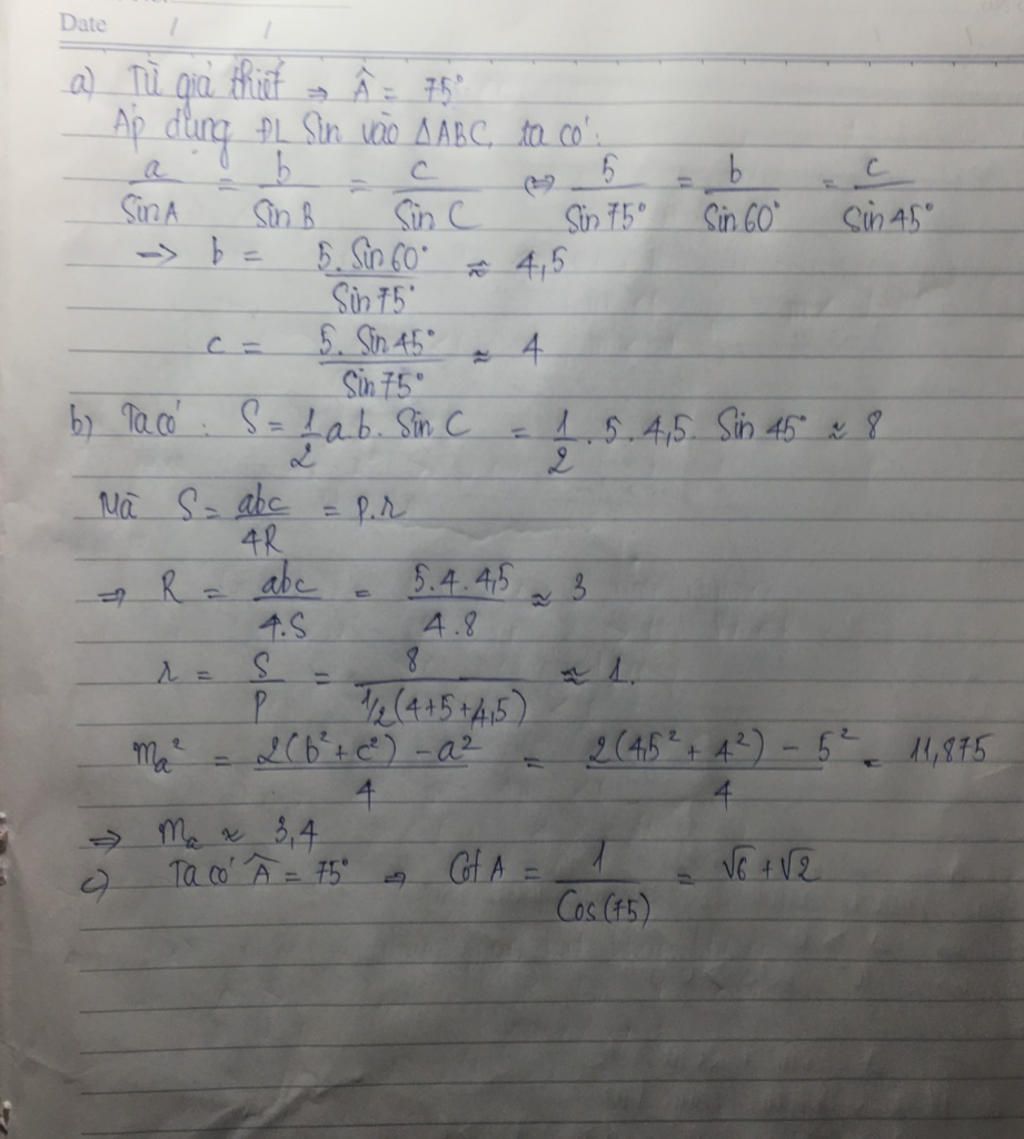 Date / /
a) Từ giả thiết ⇒ Â = 75°
Áp dụng ĐL Sin vào ΔABC, ta có:
a/SinA = b/Sin B = c/Sin C ⇔ 5/Sin 75° = b/Sin 60° = c/Sin 45°
→ b = 5.Sin 60°/Sin 75° ≈ 4,5
c = 5.Sin 45°/Sin 75° ≈ 4
b) Ta có : S = 1/2 a.b. Sin C = 1/2 . 5. 4,5. Sin 45° ≈ 8
Mà S = abc/4R = p.r
⇒ R = abc/4.S = 5.4.4,5/4.8 ≈ 3
r = S/P = 8/1/2(4+5+4,5) ≈ 1.
mₐ² = 2(b²+c²) - a²/4 = 2(4,5² + 4²) - 5²/4 = 11,875
⇒ mₐ ≈ 3,4
c) Ta có Â = 75° ⇒ Cot A = 1/Cos (75) = √6 + √2